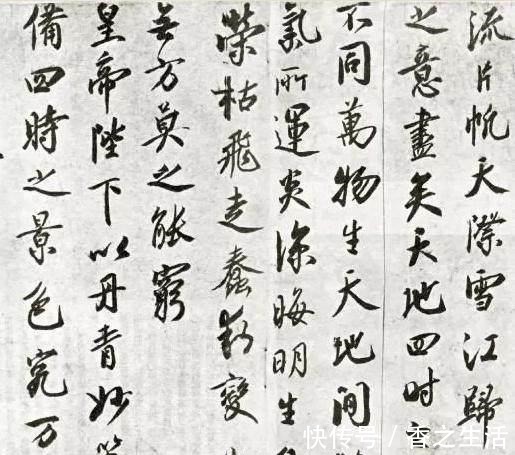 流片帆天際雪江歸
之意盡矣天地四时
不同萬物生天地間
氣所運炎涼晦明生
榮枯飛走蠢動變
無方莫之能窮
皇帝陛下以丹青妙筆
備四時之景色究万
快传号/香之生活